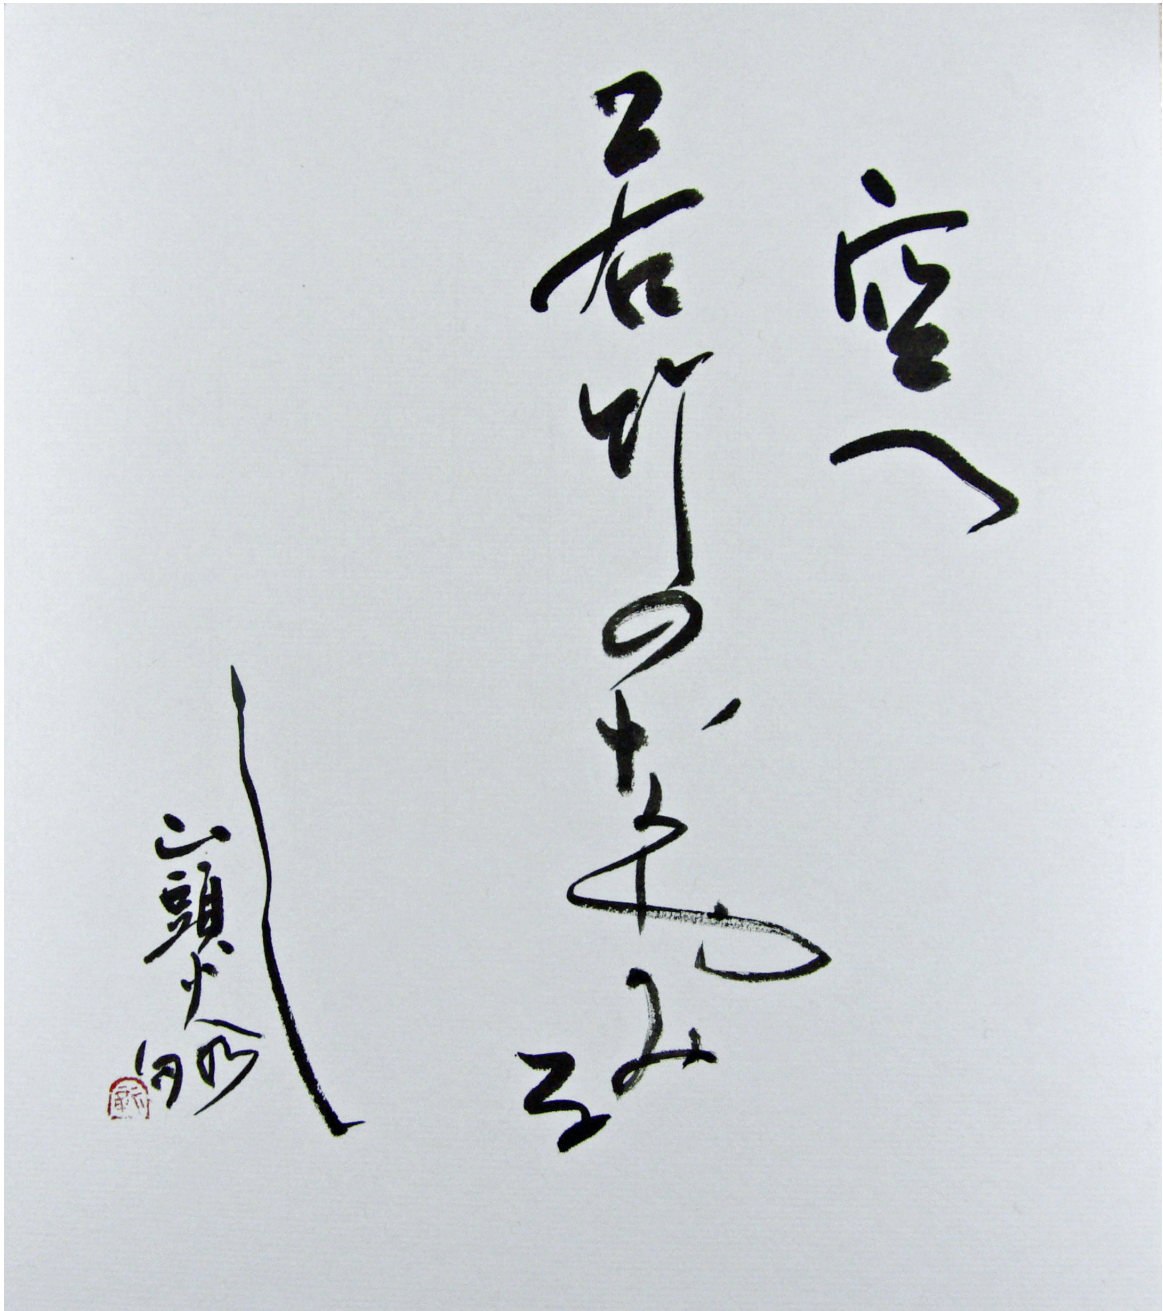 空へ
若竹のなやみな
し
山頭火
句